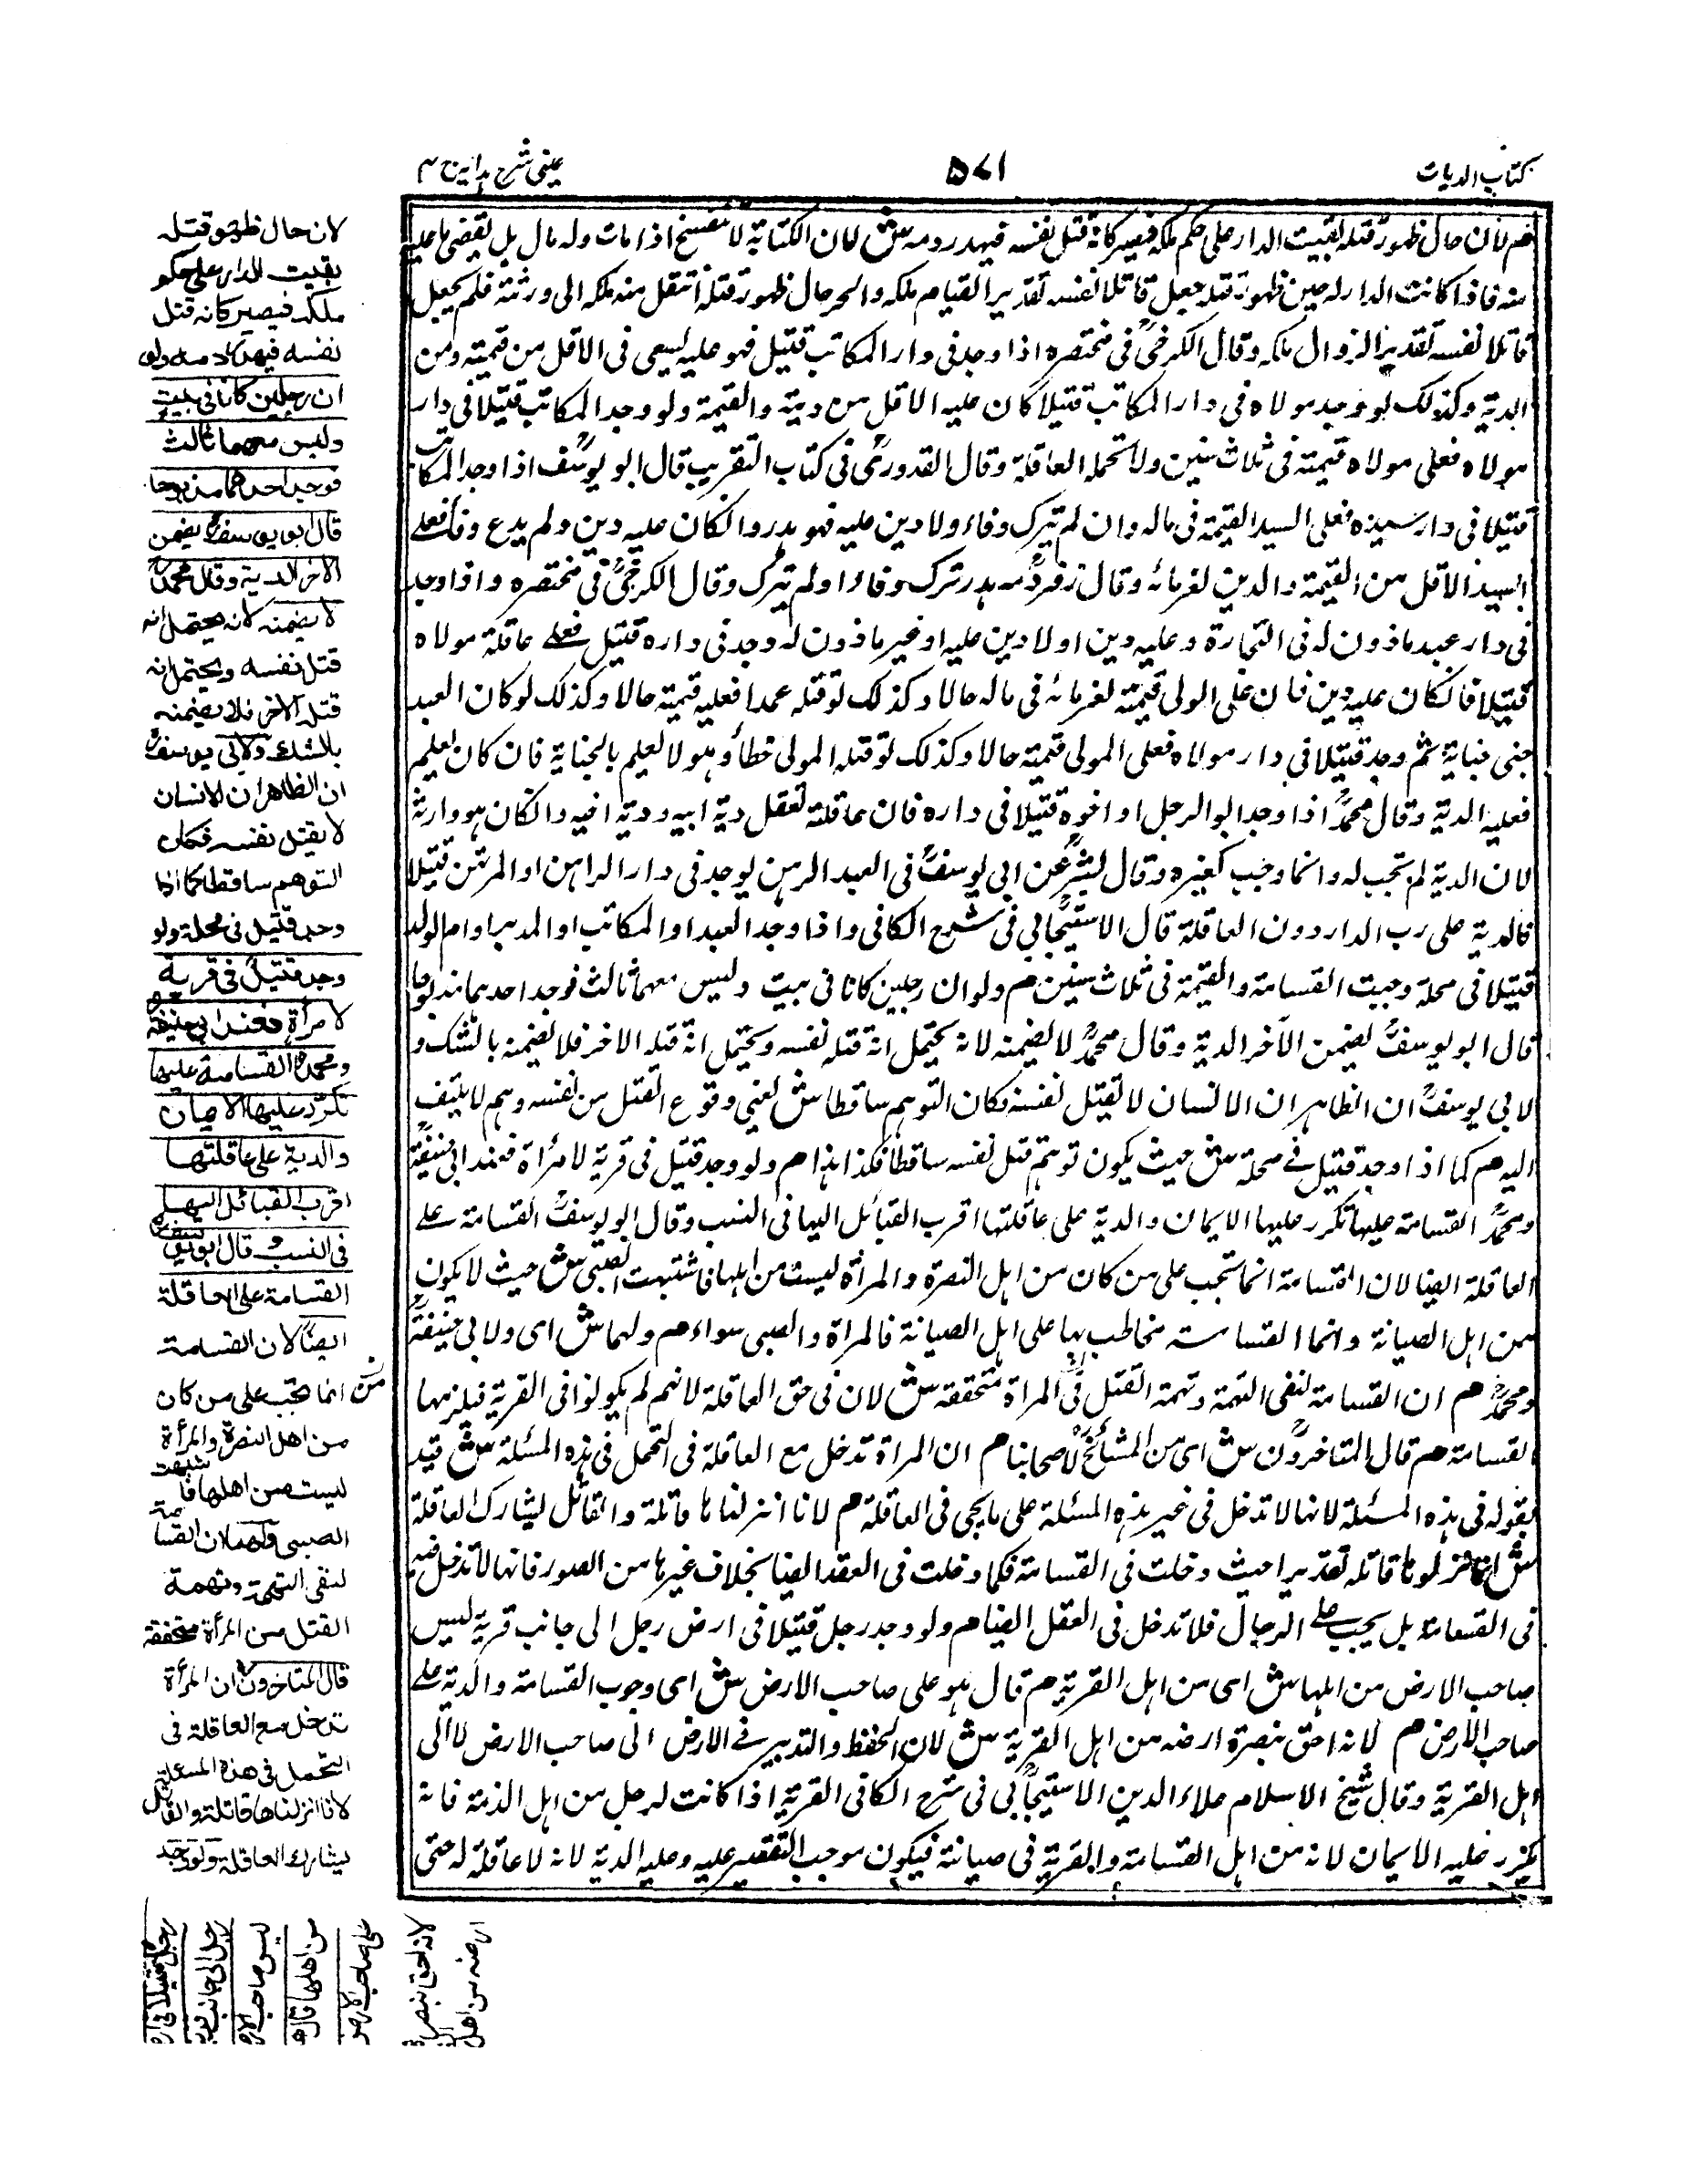 كتاب الديات
٥٧١
عينى شرح هداية ج ٤
هم لان حال ظهور قتله بقيت الدار على حكم ملكه فيصير كانه قتل نفسه فيهدر دمه ش لان الكتابة لا تنفسخ اذا مات وله مال بل يقضى ما عليه
منه فاذا كانت الدار له حين ظهور قتله جعل قاتلا نفسه تقديرا لقيام ملكه والحر حال ظهور قتله انتقل منه ملكه الى ورثته فلم يجعل
قاتلا نفسه تقديرا لزوال ملكه وقال الكرخىؒ فى مختصره اذا وجد فى دار المكاتب قتيل فهو عليه يسعى فى الاقل من قيمته ومن
الدية وكذلك لو وجد مولاه فى دار المكاتب قتيلا كان عليه الاقل من دية والقيمة ولو وجد المكاتب قتيلا فى دار
مولاه فعلى مولاه قيمته فى ثلاث سنين ولا تتحمله العاقلة وقال القدورىؒ فى كتاب التقريب قال ابو يوسفؒ اذا وجد المكاتب
قتيلا فى دار سيده فعلى السيد القيمة فى ماله وان لم يترك وفاء ولا دين عليه فهو هدر وان كان عليه دين ولم يدع وفاء فعلى
السيد الاقل من القيمة والدين لغرمائه وقال زفرؒ دمه هدر ترك وفاء او لم يترك وقال الكرخىؒ فى مختصره واذا وجد
فى دار عبد ماذون له فى التجارة وعليه دين او لا دين عليه او غير ماذون له وجد فى داره قتيل فعلى عاقلة مولاه
قتيلا فان كان عليه دين فان على المولى قيمته لغرمائه فى ماله حالا وكذلك لو قتله عمدا فعليه قيمته حالا وكذلك لو كان العبد
جنى جناية ثم وجد قتيلا فى دار مولاه فعلى المولى قيمته حالا وكذلك لو قتله المولى خطأ وهو لا يعلم بالجناية فان كان يعلم
فعليه الدية وقال محمدؒ اذا وجد ابو الرجل او اخوه قتيلا فى داره فان عاقلته تعقل دية ابيه ودية اخيه وان كان هو وارثه
لان الدية لم تجب له وانما وجبت لغيره وقال بشرؒ عن ابى يوسفؒ فى العبد الرهن يوجد فى دار الراهن او المرتهن قتيلا
فالدية على رب الدار دون العاقلة قال الاسبيجابى فى شرح الكافى واذا وجد العبد او المكاتب او المدبر او ام الولد
قتيلا فى محلة وجبت القسامة والقيمة فى ثلاث سنين هم ولو ان رجلين كانا فى بيت وليس معهما ثالث فوجد احدهما مذبوحا
قال ابو يوسفؒ يضمن الآخر الدية وقال محمدؒ لا يضمنه لانه يحتمل انه قتل نفسه ويحتمل انه قتله الاخر فلا يضمنه بالشك و
لابى يوسفؒ ان الظاهر ان الانسان لا يقتل نفسه فكان التوهم ساقطا ش يعنى وقوع القتل من نفسه وهم لا يلتفت
اليه هم كما اذا وجد قتيل فى محلة ش حيث يكون توهم قتل نفسه ساقطا فكذا هذا هم ولو وجد قتيل فى قرية لامرأة فعند ابى حنيفةؒ
ومحمدؒ القسامة عليها تكرر عليها الايمان والدية على عاقلتها اقرب القبائل اليها فى النسب وقال ابو يوسفؒ القسامة على
العاقلة ايضا لان القسامة انما تجب على من كان من اهل النصرة والمرأة ليست من اهلها فاشتبهت الصبى ش حيث لا يكون
من اهل الصيانة وانما القسامة مخاطب بها على اهل الصيانة فالمرأة والصبى سواء هم ولهما ش اى ولابى حنيفةؒ
ومحمدؒ هم ان القسامة لنفى التهمة وتهمة القتل فى المرأة متحققة ش لان فى حق العاقلة لانهم لم يكونوا فى القرية فيلزمها
القسامة هم قال المتاخرون ش اى من المشائخ لاصحابنا هم ان المرأة تدخل مع العاقلة فى التحمل فى هذه المسئلة ش قيد
بقوله فى هذه المسئلة لانها لا تدخل فى غير هذه المسئلة على ما يجئ فى العاقلة هم لانا انزلناها قاتلة والقاتل يشارك العاقلة
ش قاتلة تقديرا حيث دخلت فى القسامة فكما دخلت فى العقد ايضا بخلاف غيرها من الصور فانها لا تدخل فيه
فى القسامة بل يجب على الرجال فلا تدخل فى العقل ايضا هم ولو وجد رجل قتيلا فى ارض رجل الى جانب قرية ليس
صاحب الارض من اهلها ش اى من اهل القرية هم قال هو على صاحب الارض ش اى وجوب القسامة والدية على
صاحب الارض هم لانه احق بنصرة ارضه من اهل القرية ش لان الحفظ والتدبير فى الارض الى صاحب الارض لا الى
اهل القرية وقال شيخ الاسلام علاء الدين الاسبيجابى فى شرح الكافى القرية اذا كانت لرجل من اهل الذمة فانه
يكرر عليه الايمان لانه من اهل القسامة والقرية فى صيانته فيكون موجب التقصير عليه وعليه الدية لانه لا عاقلة له حتى
لان حال ظهور قتله
بقيت الدار على حكم
ملكه فيصير كانه قتل
نفسه فيهدر دمه ولو
ان رجلين كانا فى بيت
وليس معهما ثالث
فوجد احدهما مذبوحا
قال ابو يوسفؒ يضمن
الاخر الدية وقال محمدؒ
لا يضمنه لانه يحتمل انه
قتل نفسه ويحتمل انه
قتله الآخر فلا يضمنه
بالشك ولابى يوسفؒ
ان الظاهر ان الانسان
لا يقتل نفسه فكان
التوهم ساقطا كما اذا
وجد قتيل فى محلة ولو
وجد قتيل فى قرية
لامرأة فعند ابى حنيفة
ومحمدؒ القسامة عليها
تكرر عليها الايمان
والدية على عاقلتها
اقرب القبائل اليها
فى النسب وقال ابو يوسفؒ
القسامة على العاقلة
ايضًا لان القسامة
انما تجب على من كان
من اهل النصرة والمرأة
ليست من اهلها فاشبهت
الصبى ولهما ان القسامة
لنفى التهمة وتهمة
القتل من المرأة متحققة
قال المتاخرون ان المرأة
تدخل مع العاقلة فى
التحمل فى هذه المسئلة
لانا انزلناها قاتلة والقاتل
يشارك العاقلة ولو وجد
رجل قتيلا فى ار
رجل الى جانب قرية
ليس صاحب الار
من اهلها قال هو
على صاحب الارض
لانه احق بنصر
ارضه من اهل